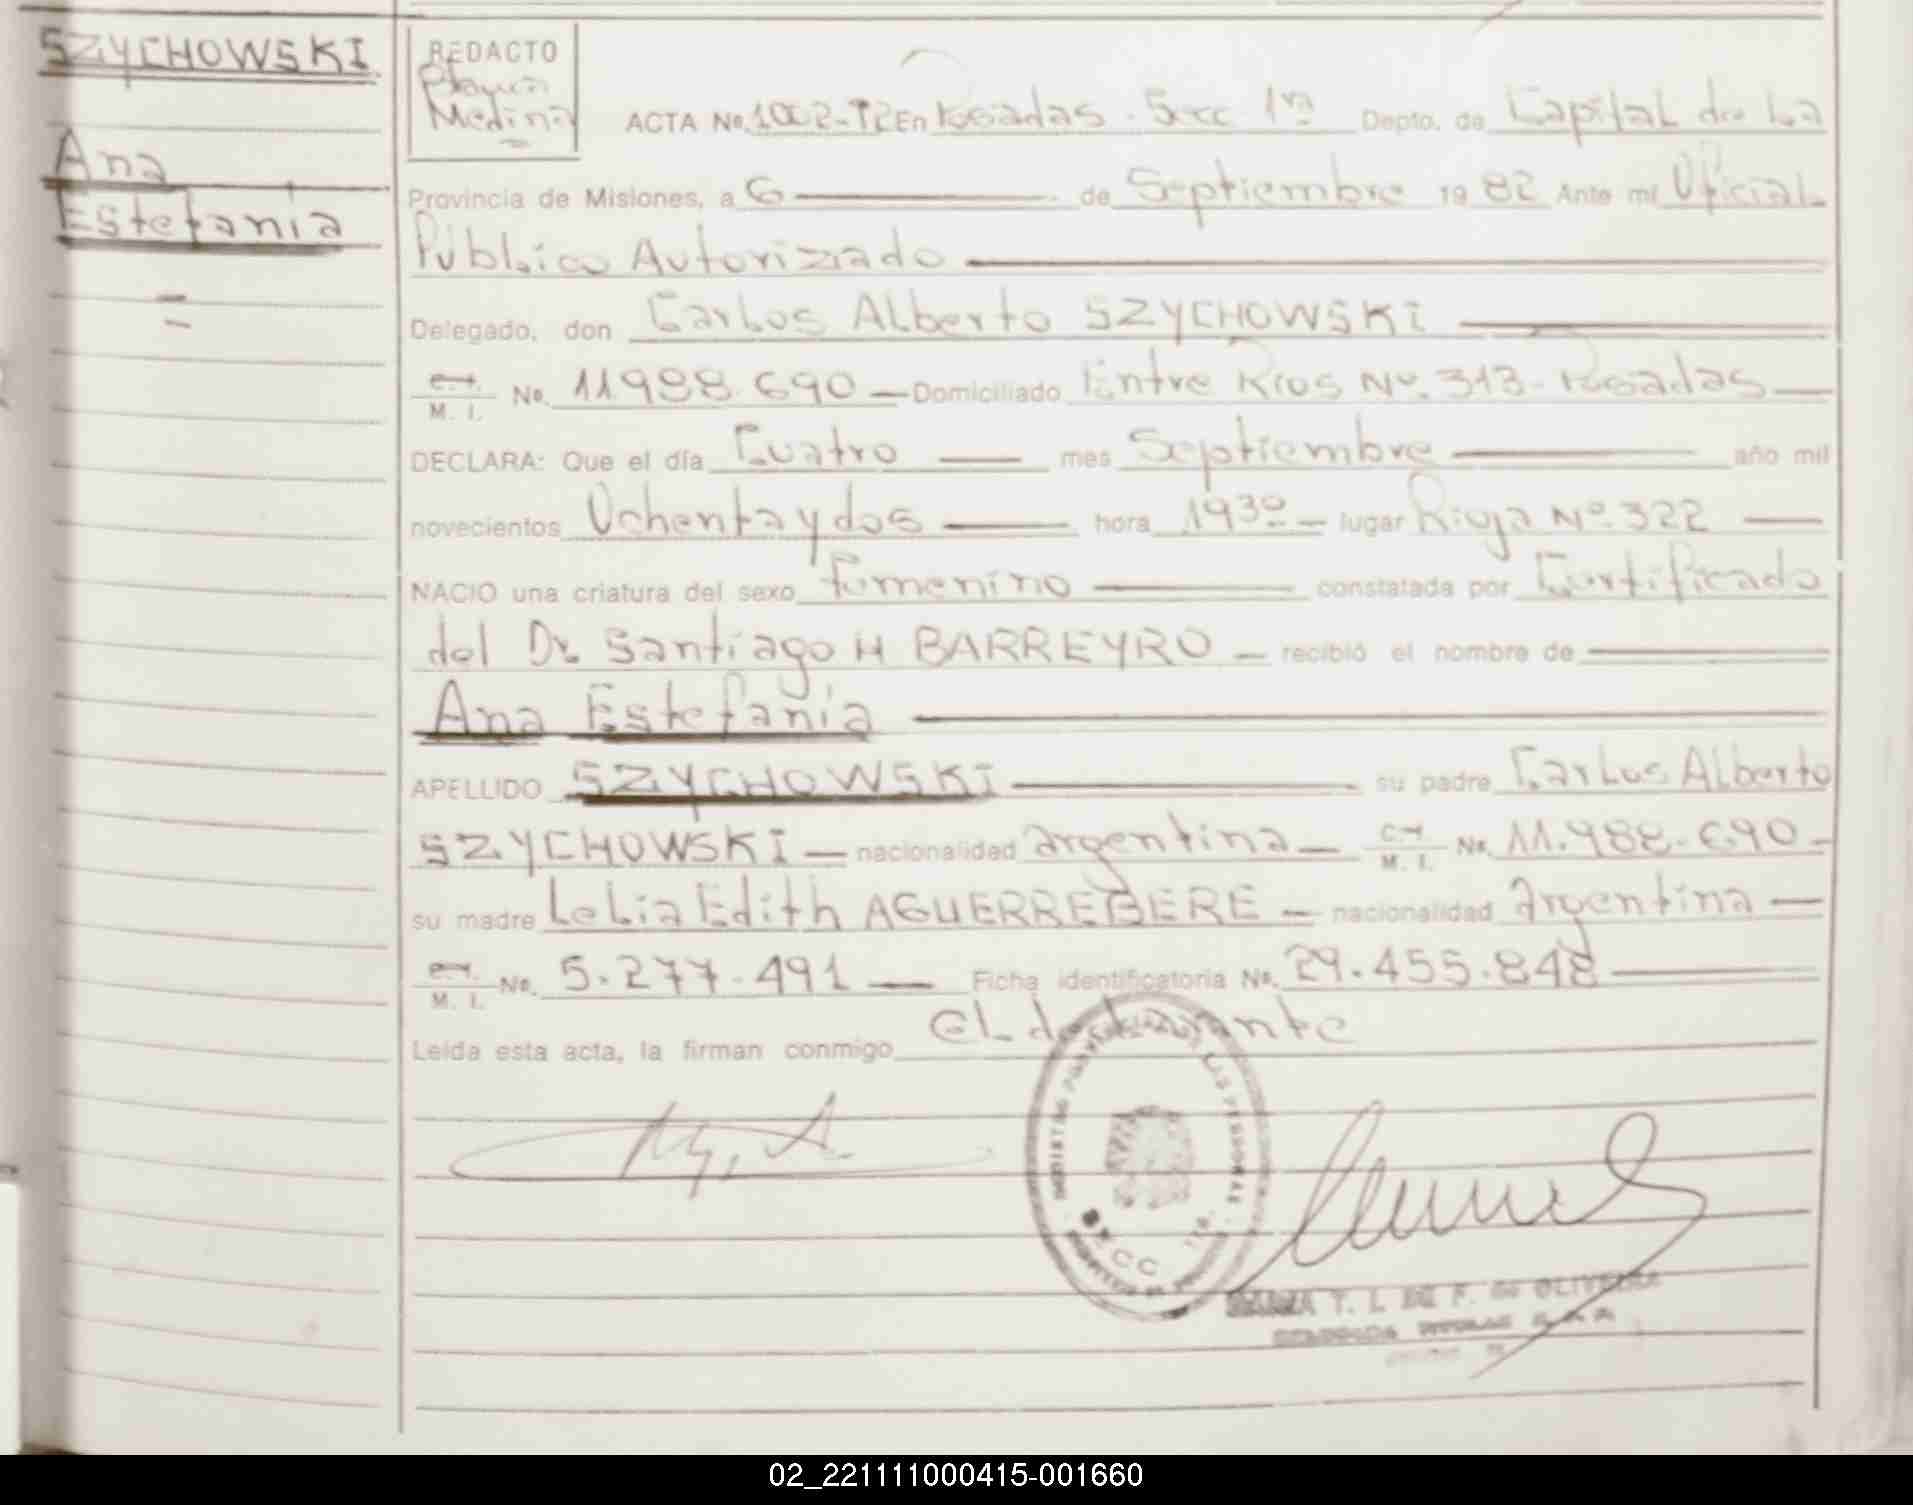 SZYCHOWSKI
Ana
Estefanía
REDACTO
Medina
ACTA No. 1002-T2 En Posadas. Secc 1ra Depto. de Capital de La
Provincia de Misiones, a 6 de Septiembre 19 82 Ante mí Oficial
Público Autorizado
Delegado, don Carlos Alberto SZYCHOWSKI
M. I. No. 11.988.690 Domiciliado Entre Ríos No. 313- Posadas
DECLARA: Que el día Cuatro mes Septiembre año mil
novecientos Ochenta y dos hora 19 30 lugar Rioja No. 322
NACIO una criatura del sexo femenino constatada por Certificado
del Dr. Santiago H BARREYRO recibió el nombre de
Ana Estefanía
APELLIDO SZYCHOWSKI su padre Carlos Alberto
SZYCHOWSKI nacionalidad argentina M. I. No. 11.988.690
su madre Lelia Edith AGUERREBERE nacionalidad argentina
M. I. No. 5.277.491 Ficha identificatoria No. 29.455.848
Leída esta acta, la firman conmigo el declarante
T. L. DE F. de OLIVEIRA
02_221111000415-001660